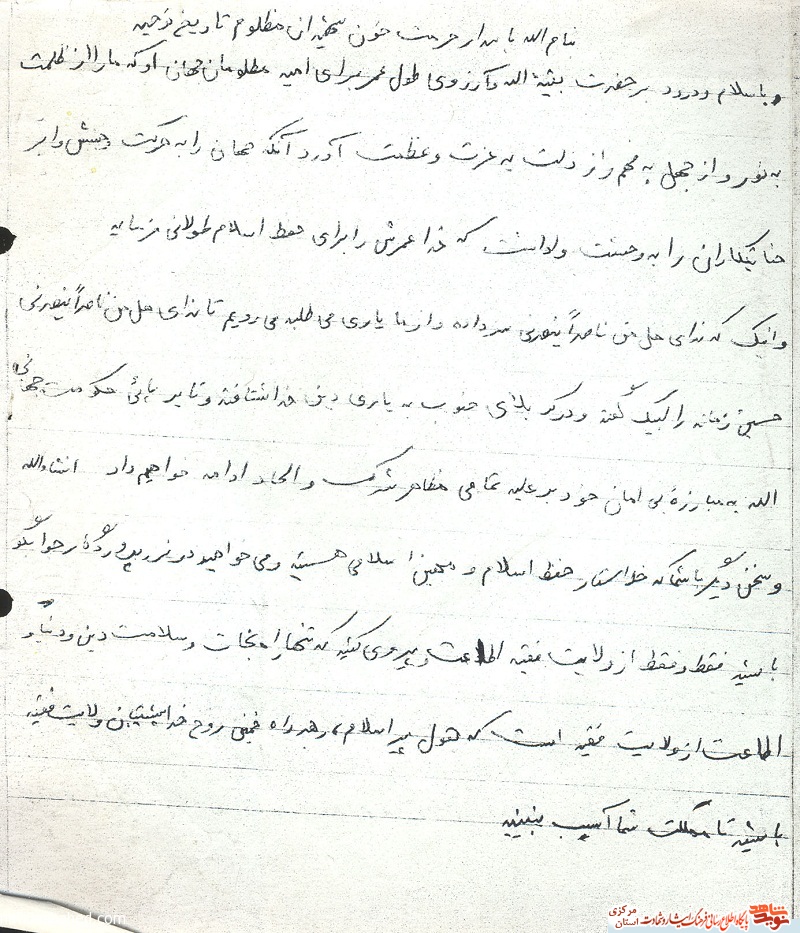 بنام الله پاسدار حرمت خون شهیدان مظلوم تاریخ توحید
با سلام و درود بر حضرت بقیة الله و آرزوی طول عمر برای امید مظلومان جهان او که ما را از ظلمت
به نور و از جهل به فهم و از ذلت به عزت و عظمت آورد آنکه جهان را به حرکت و جنبش و ابر
جنایتکاران را به وحشت واداشت که خدا عمرش را برای حفظ اسلام طولانی فرماید
و اینک که ندای هل من ناصراً ینصرنی سر داده و از ما یاری می طلبد می رویم تا ندای هل من ناصراً ینصرنی
حسین زمان را لبیک گفته و در کربلای جنوب به یاری دین خدا شتافته و تا بر پائی حکومت جهانی
الله به مبارزهٔ بی امان خود بر علیه تمامی مظاهر شرک و الحاد ادامه خواهیم داد انشاءالله
و سخنی دیگر با شما که خواستار حفظ اسلام و میهن اسلامی هستید و می خواهید در نزد پروردگار جوابگو
باشید فقط و فقط از ولایت فقیه اطاعت و پیروی کنید که تنها راه نجات و سلامت دین و دنیا و
اطاعت از ولایت فقیه است که بقول پیر اسلام، رهبر راه خمینی روح خدا پشتیبان ولایت فقیه
باشید تا مملکت شما آسیب نبیند
نوید شاهد
پایگاه اطلاع رسانی فرهنگ ایثار و شهادت
استان مرکزی